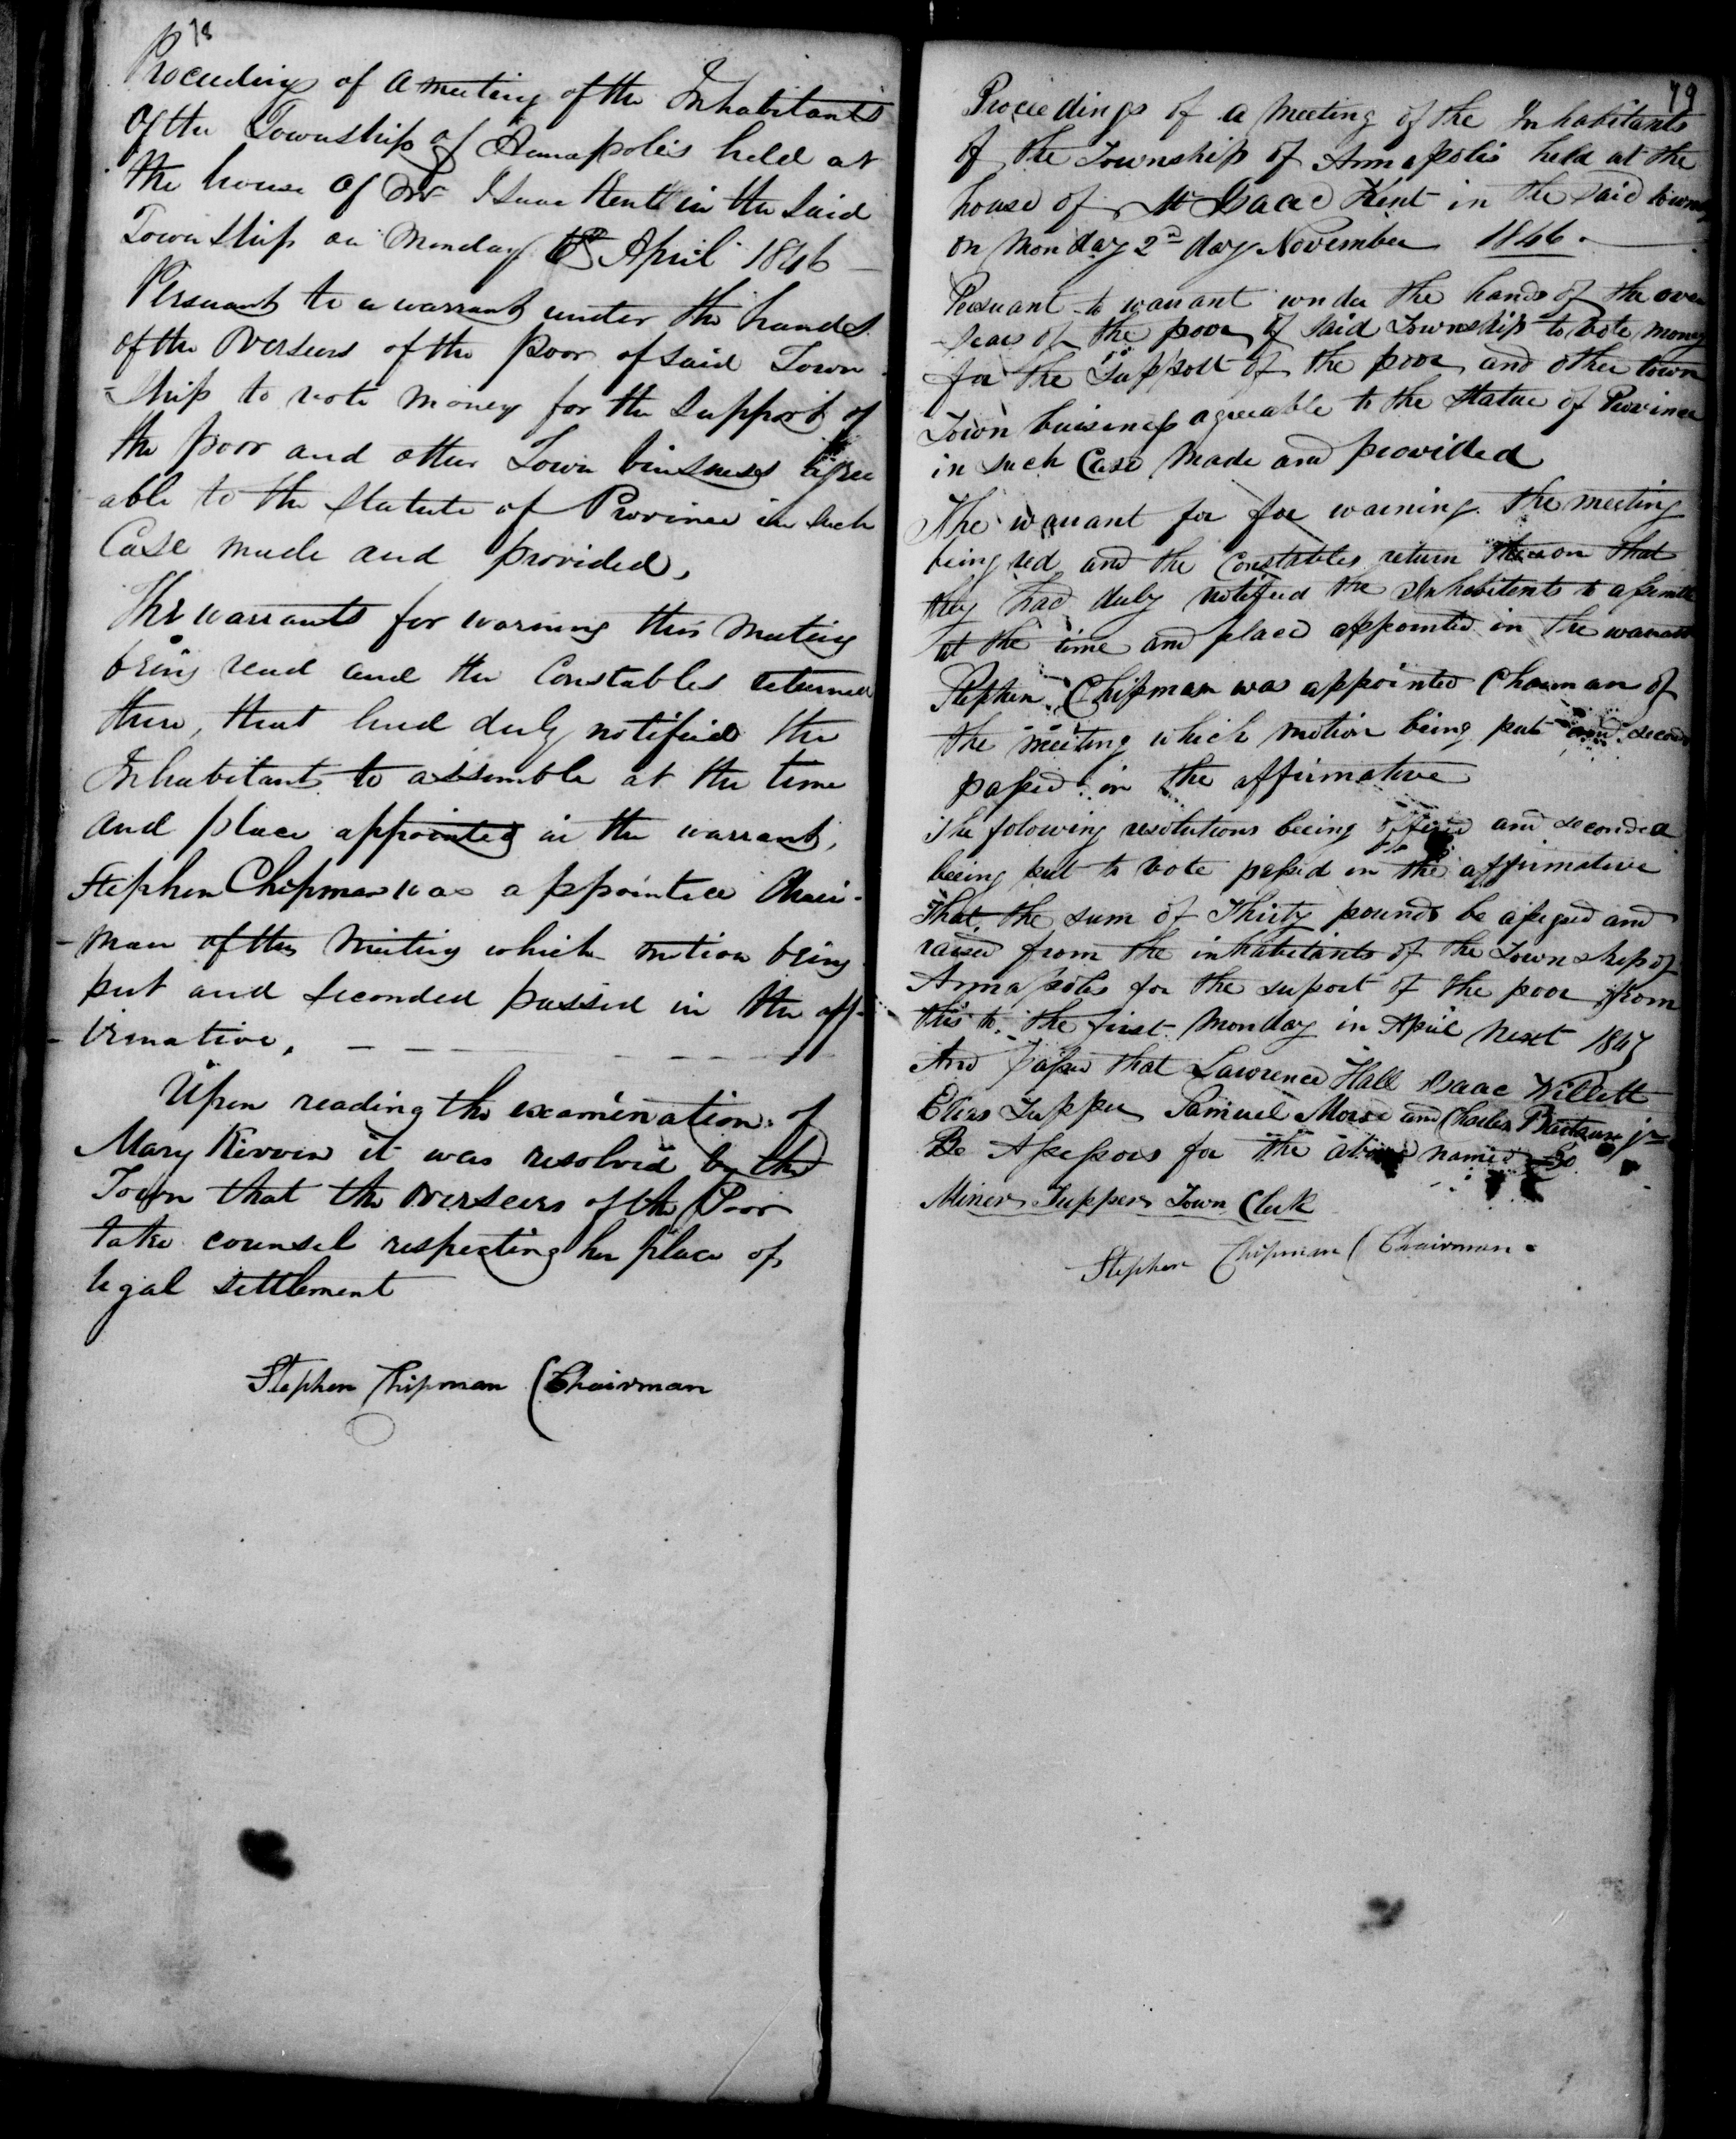 78
Proceedings of a meeting of the Inhabitants
Of the Township of Annapolis held at
the house of Mr Isaac Kent in the Said
Township on Monday April 1846 —
Persuant to a warrant under the hands
of the Overseers of the Poor of said Town
=ship to vote money for the Support of
the poor and other Town buisness agree
able to the Statute of Province in Such
Case made and provided,
The warrants for warning this Meeting
being read and the Constables returned
there, that had duly notified the
Inhabitants to assemble at the time
and place appointed in the warrant,
Stephen Chipman was appointed Chair-
-man of this Meeting which motion being
put and Seconded passed in the aff-
-irmative. — — — — —
Upon reading the examination of
Mary Kirvin it was resolved by the
Town that the Overseers of the Poor
take counsel respecting her place of
legal settlement
Stephen Chipman (Chairman
79
Proceedings of a Meeting of the Inhabitants
of the Township of Annapolis held at the
house of Mr Isaac Kent in the said
on Monday 2d day November 1846.
Persuant to warrant under the hands of the over
-sears of the poor of said Township to vote money
for the Support of the poor and other town
Town buisness agreeable to the Statue of Province
in such Case Made and provided
The warant for for warning the meeting
being red and the Constables return thereon that
they had duly notified the Inhabitents to
at the time and place appointed in the warant
Stephen Chipman was appointed Chairman of
the meeting which motion being put and second
passed in the affirmative
The folowing resolutions beeing offered and seconded
beeing put to vote passed in the affirmative
That the sum of Thirty pounds be assessed and
raised from the inhabitants of the Township of
Annapolis for the suport of the poor from
this to the first Monday in April next 1847
And passed that Lawrence Hall Isaac Willett
Elias Tupper Samuel Morse and Charles jr
Be Assessors for the above named
Miner Tupper Town Clerk
Stephen Chipman (Chairman